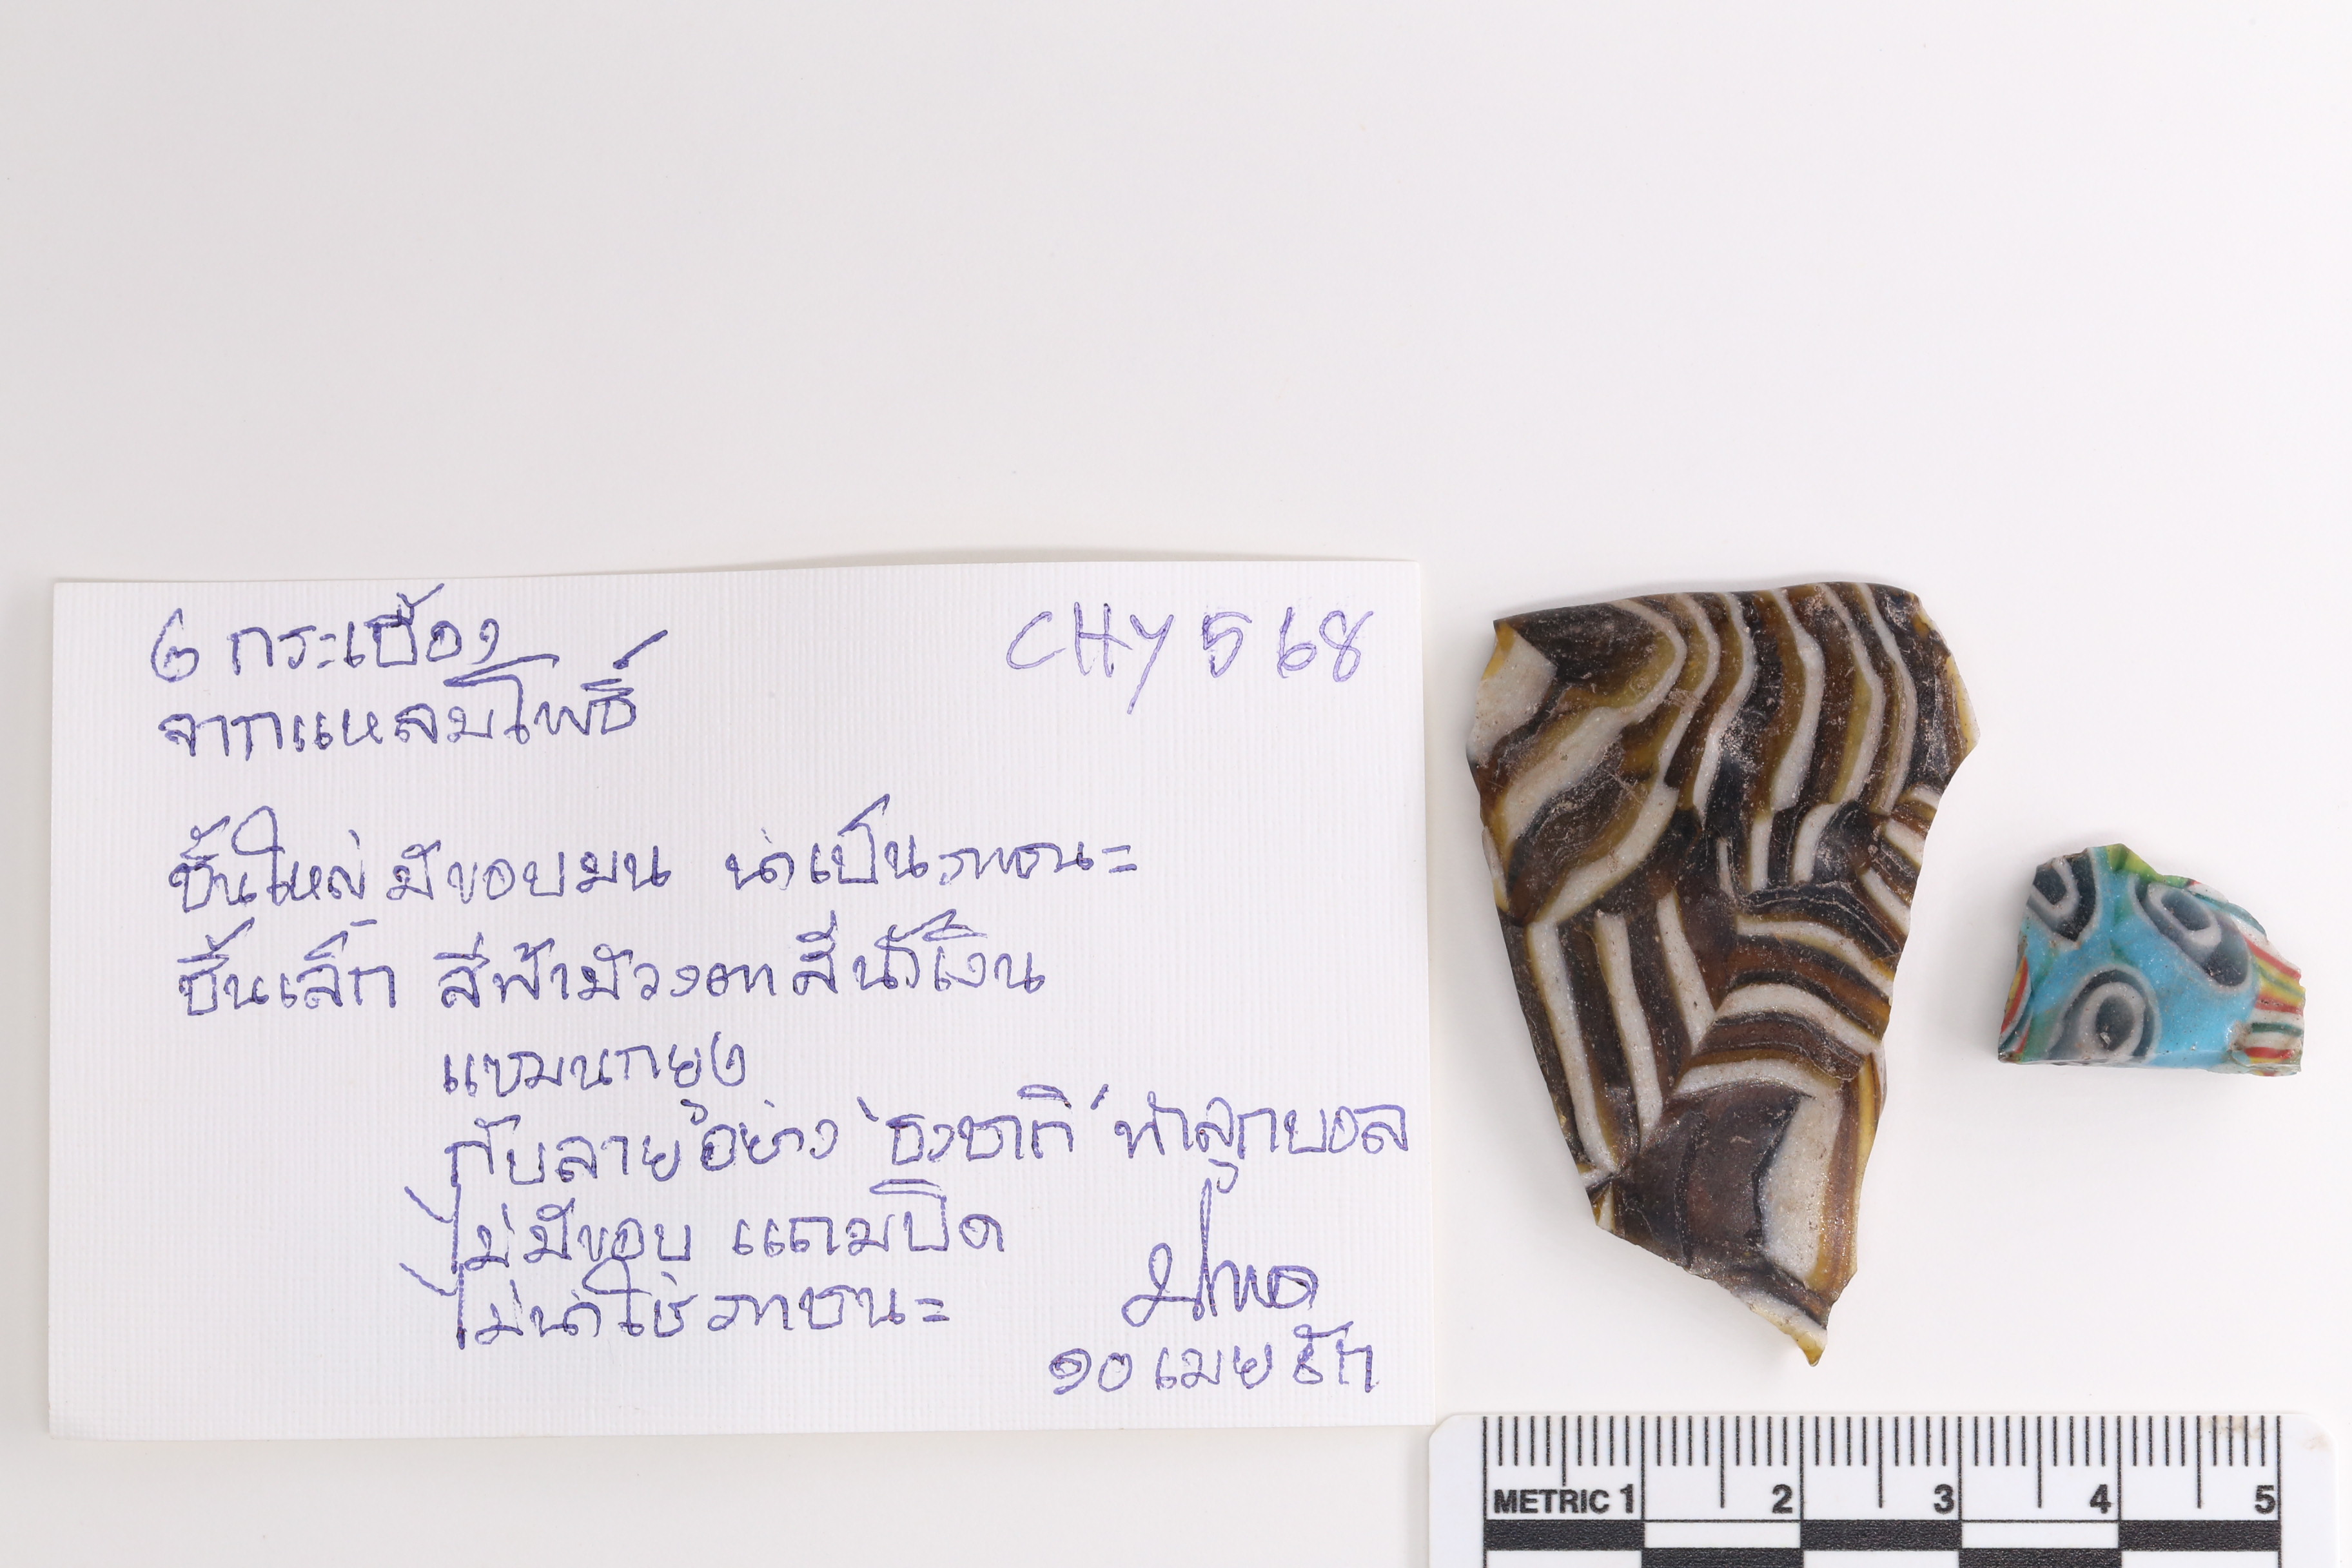 ๒ กระเบื้อง
CHY 568
จากแหลมโพธิ์
ชิ้นใหญ่ มีขอบมน น่าเป็นภาชนะ
ชิ้นเล็ก สีฟ้ามีวงตาสีน้ำเงิน
แซมนกยูง
กับลายอย่าง 'ธงชาติ' ทำลูกบอล
ไม่มีขอบ แถมบิด
ไม่น่าใช่ภาชนะ
๑๐ เมย
METRIC 1 2 3 4 5